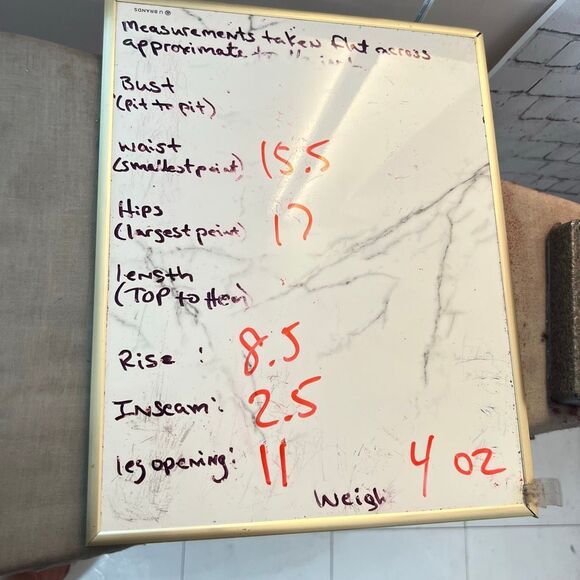 U BRANDS
Measurements taken flat across
approximate to the
Bust
(pit to pit)
Waist
(smallest point) 15.5
Hips
(largest point) 17
length
(TOP to Hem)
Rise : 8.5
Inseam: 2.5
leg opening: 11
4 oz
Weigh